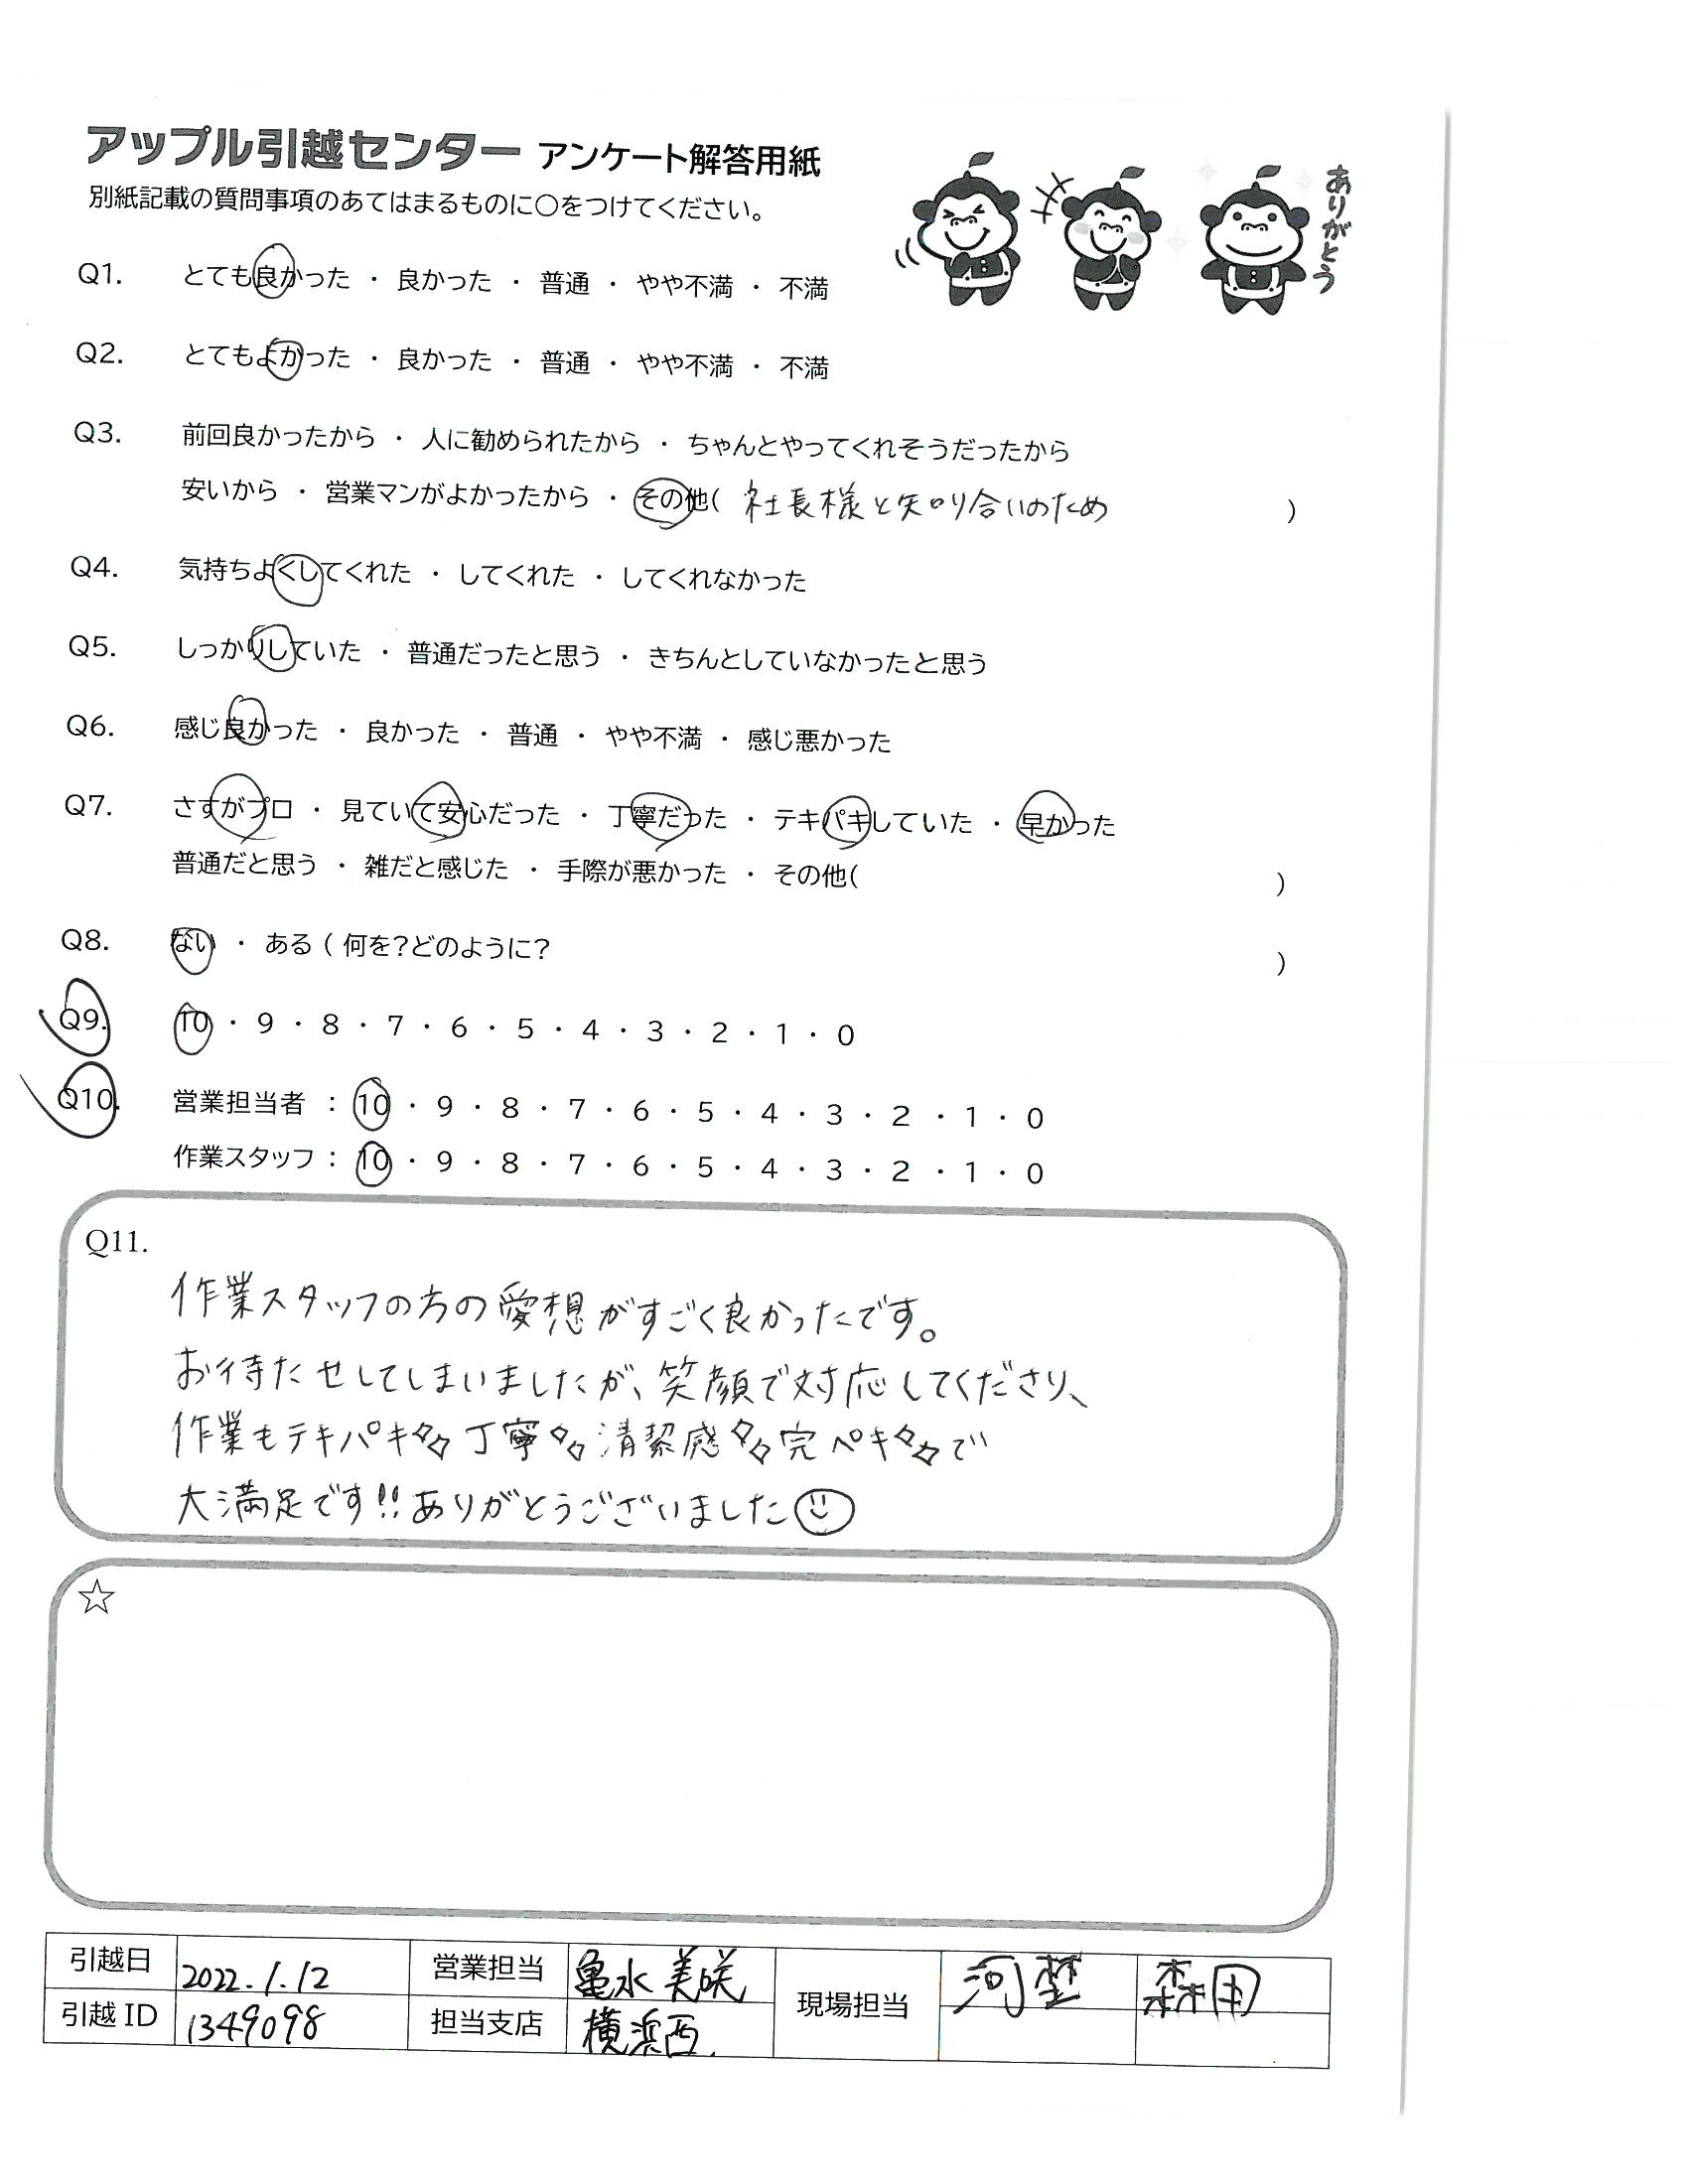 アップル引越センター アンケート解答用紙
別紙記載の質問事項のあてはまるものに○をつけてください。
ありがとう
Q1. とても良かった ・ 良かった ・ 普通 ・ やや不満 ・ 不満
Q2. とてもよかった ・ 良かった ・ 普通 ・ やや不満 ・ 不満
Q3. 前回良かったから ・ 人に勧められたから ・ ちゃんとやってくれそうだったから
安いから ・ 営業マンがよかったから ・ その他( 社長様と知り合いのため )
Q4. 気持ちよくしてくれた ・ してくれた ・ してくれなかった
Q5. しっかりしていた ・ 普通だったと思う ・ きちんとしていなかったと思う
Q6. 感じ良かった ・ 良かった ・ 普通 ・ やや不満 ・ 感じ悪かった
Q7. さすがプロ ・ 見ていて安心だった ・ 丁寧だった ・ テキパキしていた ・ 早かった
普通だと思う ・ 雑だと感じた ・ 手際が悪かった ・ その他( )
Q8. ない ・ ある ( 何を?どのように? )
Q9. 10 ・ 9 ・ 8 ・ 7 ・ 6 ・ 5 ・ 4 ・ 3 ・ 2 ・ 1 ・ 0
Q10. 営業担当者 : 10 ・ 9 ・ 8 ・ 7 ・ 6 ・ 5 ・ 4 ・ 3 ・ 2 ・ 1 ・ 0
作業スタッフ : 10 ・ 9 ・ 8 ・ 7 ・ 6 ・ 5 ・ 4 ・ 3 ・ 2 ・ 1 ・ 0
Q11.
作業スタッフの方の愛想がすごく良かったです。
お待たせしてしまいましたが、笑顔で対応してくださり、
作業もテキパキ 丁寧 清潔感 完ペキで
大満足です!!ありがとうございました
☆
引越日 2022.1.12 営業担当 亀水 美咲 現場担当 河埜
引越 ID 1349098 担当支店 横浜西.